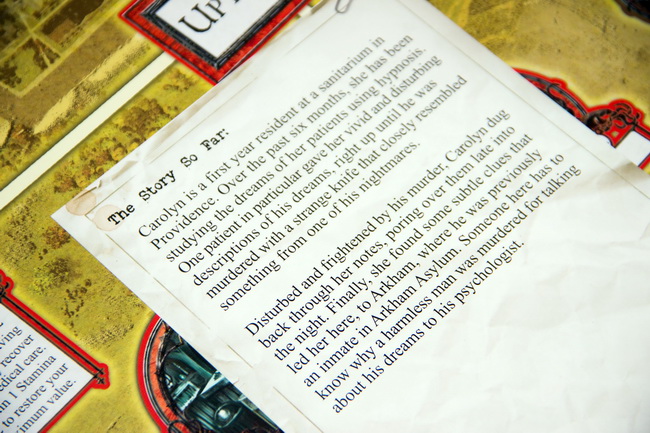 UP
The Story So Far:
Carolyn is a first year resident at a sanitarium in
Providence. Over the past six months, she has been
studying the dreams of her patients using hypnosis.
One patient in particular gave her vivid and disturbing
descriptions of his dreams, right up until he was
murdered with a strange knife that closely resembled
something from one of his nightmares.
Disturbed and frightened by his murder, Carolyn dug
back through her notes, poring over them late into
the night. Finally, she found some subtle clues that
led her here, to Arkham, where he was previously
an inmate in Arkham Asylum. Someone here has to
know why a harmless man was murdered for talking
about his dreams to his psychologist.
recover
medical care.
1 Stamina
to restore your
maximum value.